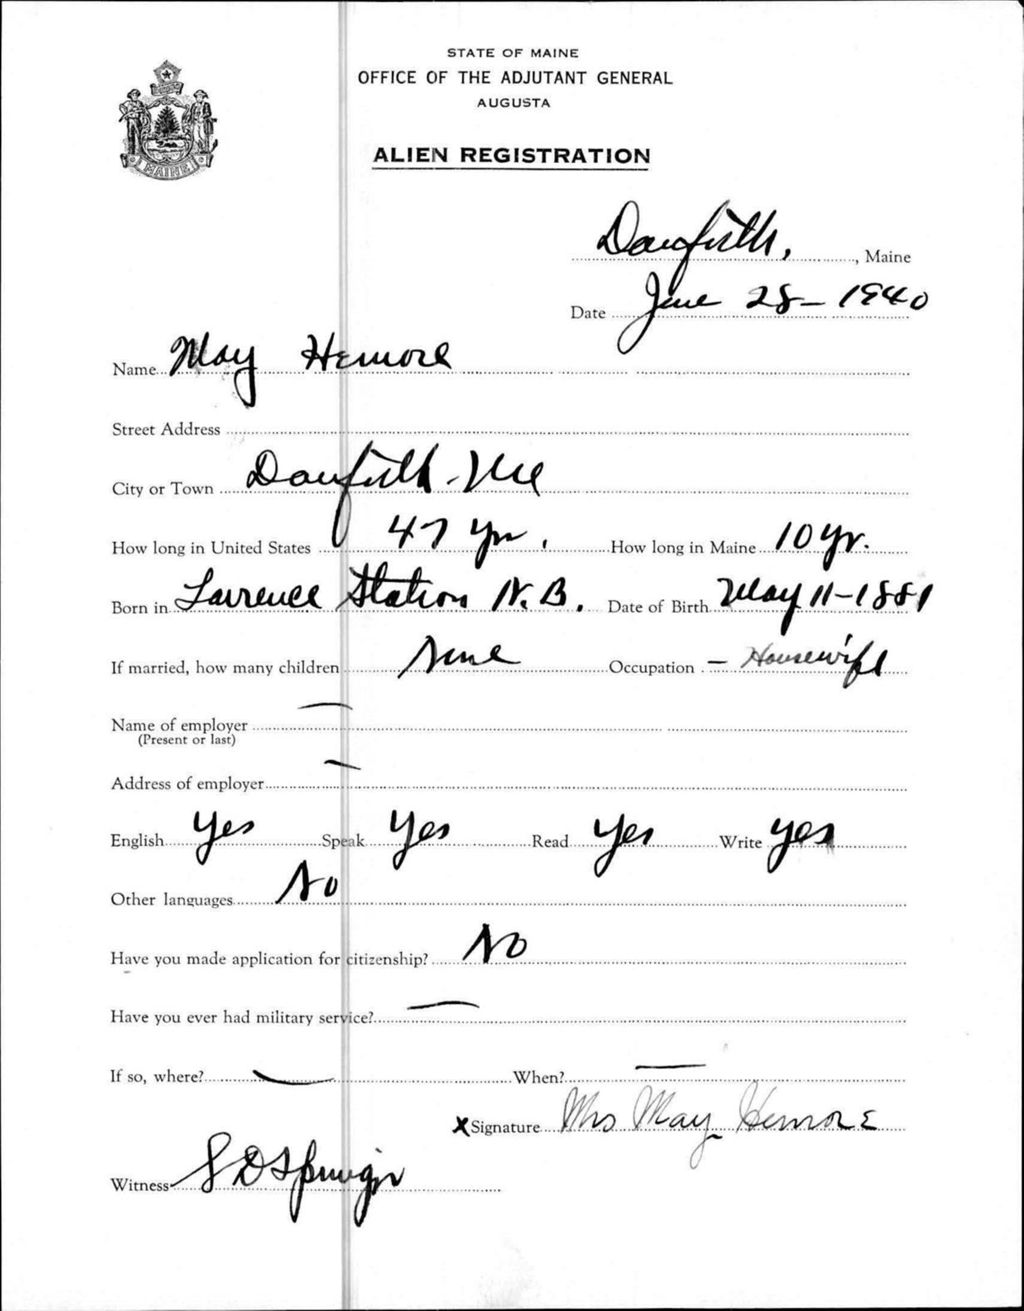 STATE OF MAINE
OFFICE OF THE ADJUTANT GENERAL
AUGUSTA
ALIEN REGISTRATION
MAINE
Danforth, , Maine
Date June 28 - 1940
Name May Hemore
Street Address
City or Town Danforth - Me
How long in United States 47 yrs. How long in Maine 10 yr.
Born in Lawrence Station N.B. Date of Birth May 11-1881
If married, how many children None Occupation - Housewife
Name of employer
(Present or last)
Address of employer
English yes Speak yes Read yes Write yes
Other languages No
Have you made application for citizenship? No
Have you ever had military service?
If so, where? When?
X Signature Mrs May Hemore
Witness S D